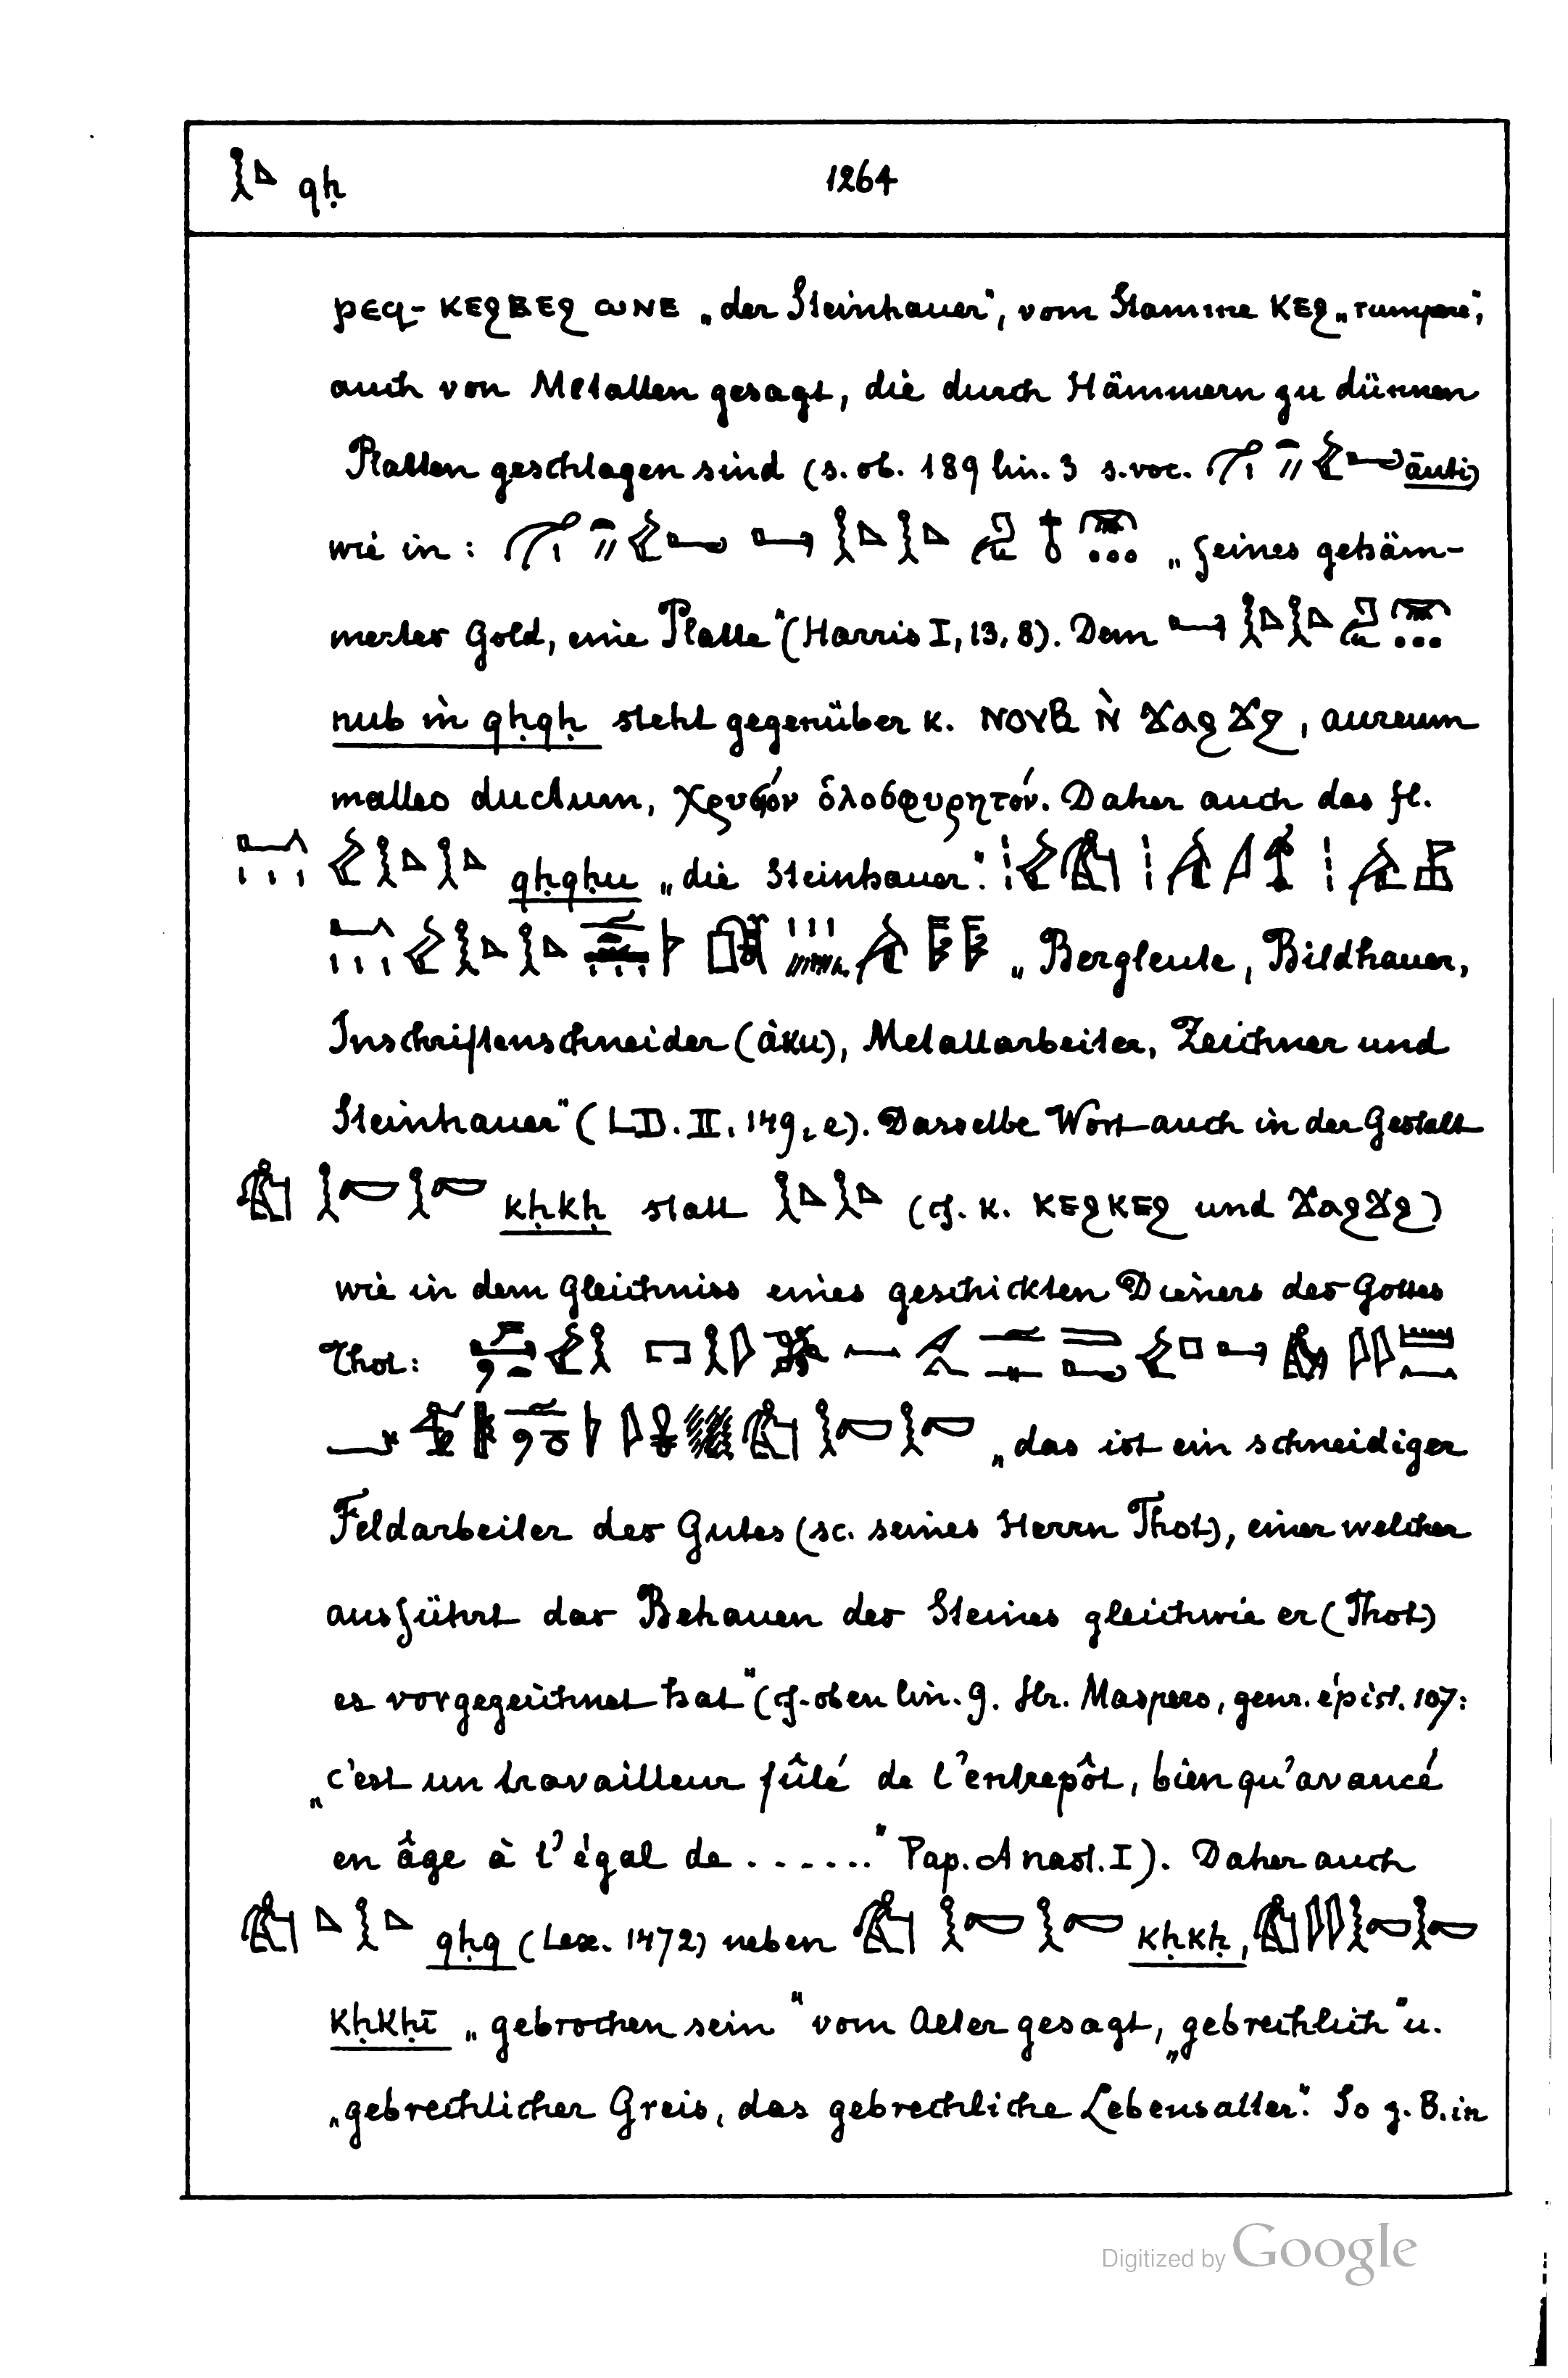 qḥ 1264
ⲣⲉϥ- ⲕⲉϩⲕⲉϩ ⲱⲛⲉ „der Steinhauer", vom Stamme ⲕⲉϩ „rumpere",
auch von Metallen gesagt, die durch Hämmern zu dünnen
Platten geschlagen sind (s. ob. 189 lin. 3 s. voc. āuti)
wie in: „feines gehäm-
mertes Gold, eine Platte" (Harris I, 13, 8). Dem
nub m qḥqḥ steht gegenüber K. ⲛⲟⲩⲃ ⲛ̀ ϫⲁϩϫϩ, aureum
malleo ductum, χρυσόν ὁλοσφυρητόν. Daher auch das fl.
qḥqḥu „die Steinhauer".
„Bergleute, Bildhauer,
Inschriftenschneider (àku), Metallarbeiter, Zeichner und
Steinhauer" (LD. II. 149, e). Dasselbe Wort auch in der Gestalt
kḥkḥ statt (cf. K. ⲕⲉϩⲕⲉϩ und ϫⲁϩϫϩ)
wie in dem Gleichniss eines geschickten Dieners des Gottes
Thot:
„das ist ein schneidiger
Feldarbeiter des Gutes (sc. seines Herrn Thot), einer welcher
ausführt das Behauen des Steines gleichwie er (Thot)
es vorgezeichnet hat" (cf. oben lin. 9. Hr. Maspero, genr. épist. 107:
„c'est un travailleur fûté de l'entrepôt, bien qu'avancé
en âge à l'égal de ......" Pap. Anast. I). Daher auch
qḥq (Lex. 1472) neben kḥkḥ,
kḥkḥī „gebrochen sein" vom Alter gesagt, „gebrechlich" u.
„gebrechlicher Greis, das gebrechliche Lebensalter". So z. B. in
Digitized by Google